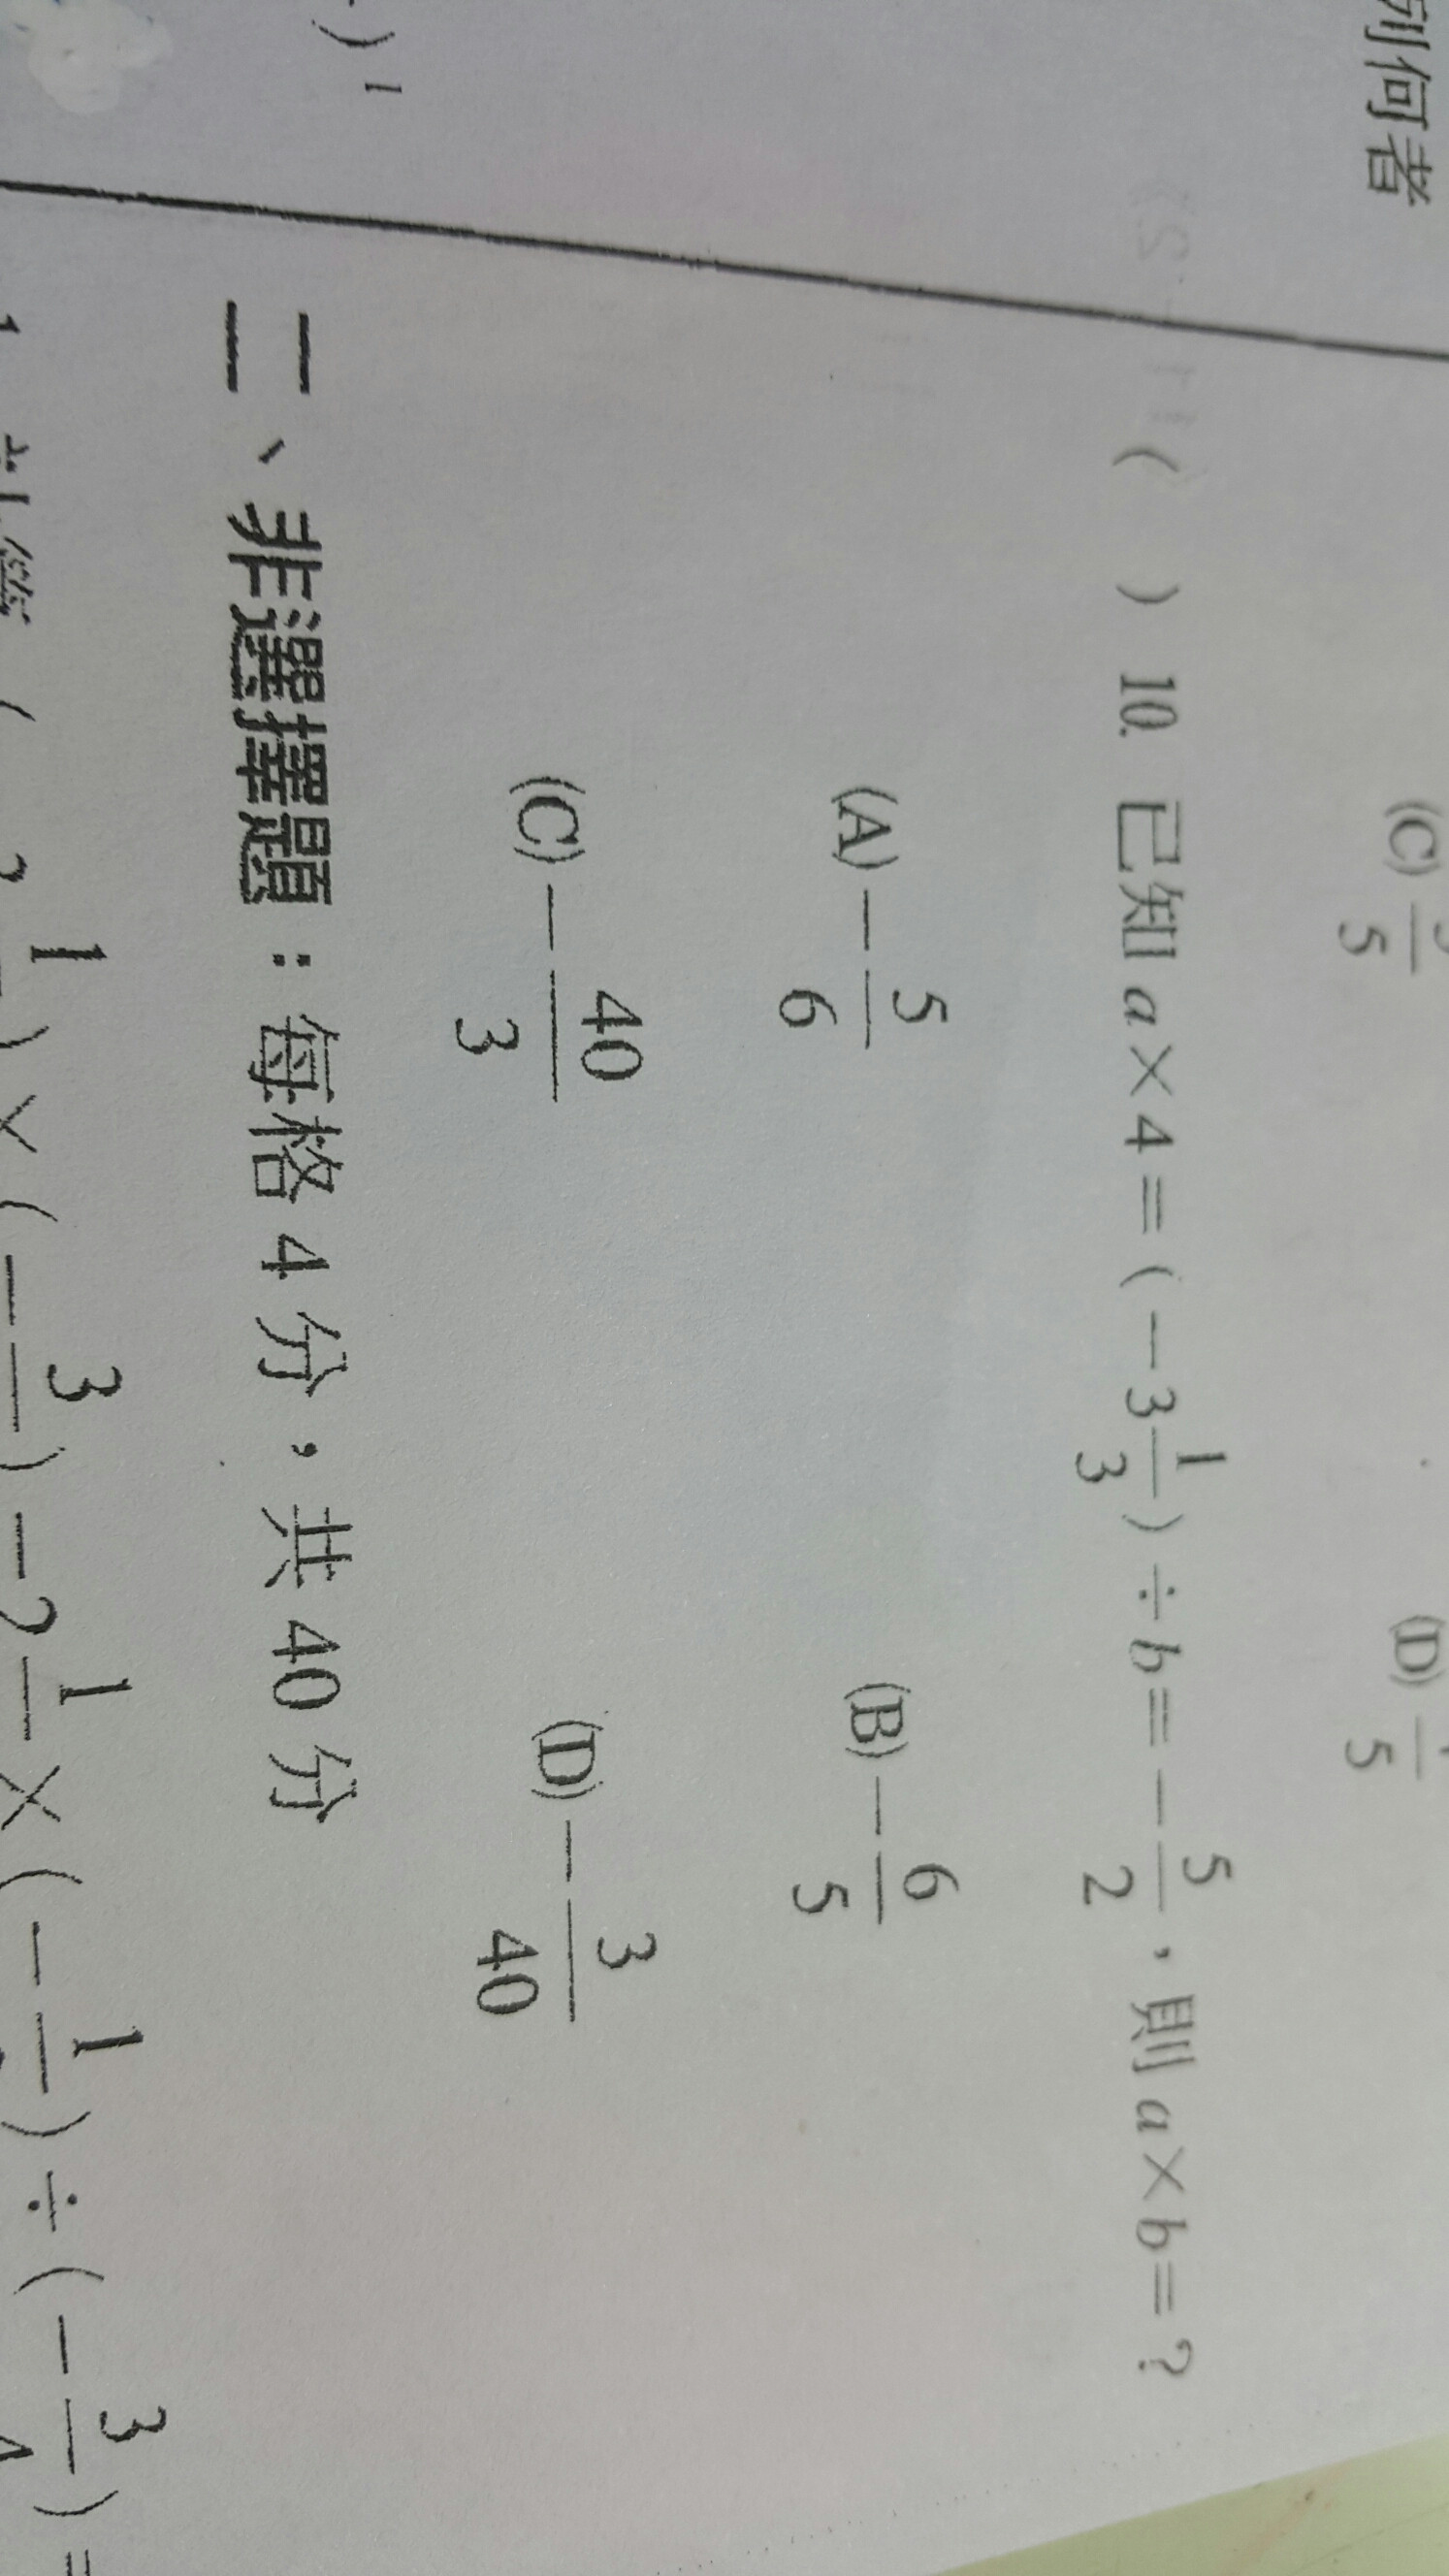 列何者
(C) 5
(D) 5
( ) 10. 已知 a×4＝(－3 1/3)÷b＝－5/2，則 a×b＝？
(A)－5/6 (B)－6/5
(C)－40/3 (D)－3/40
二、非選擇題：每格4分，共40分
1)×(－3)－2 1×(－1)÷(－3/4)＝